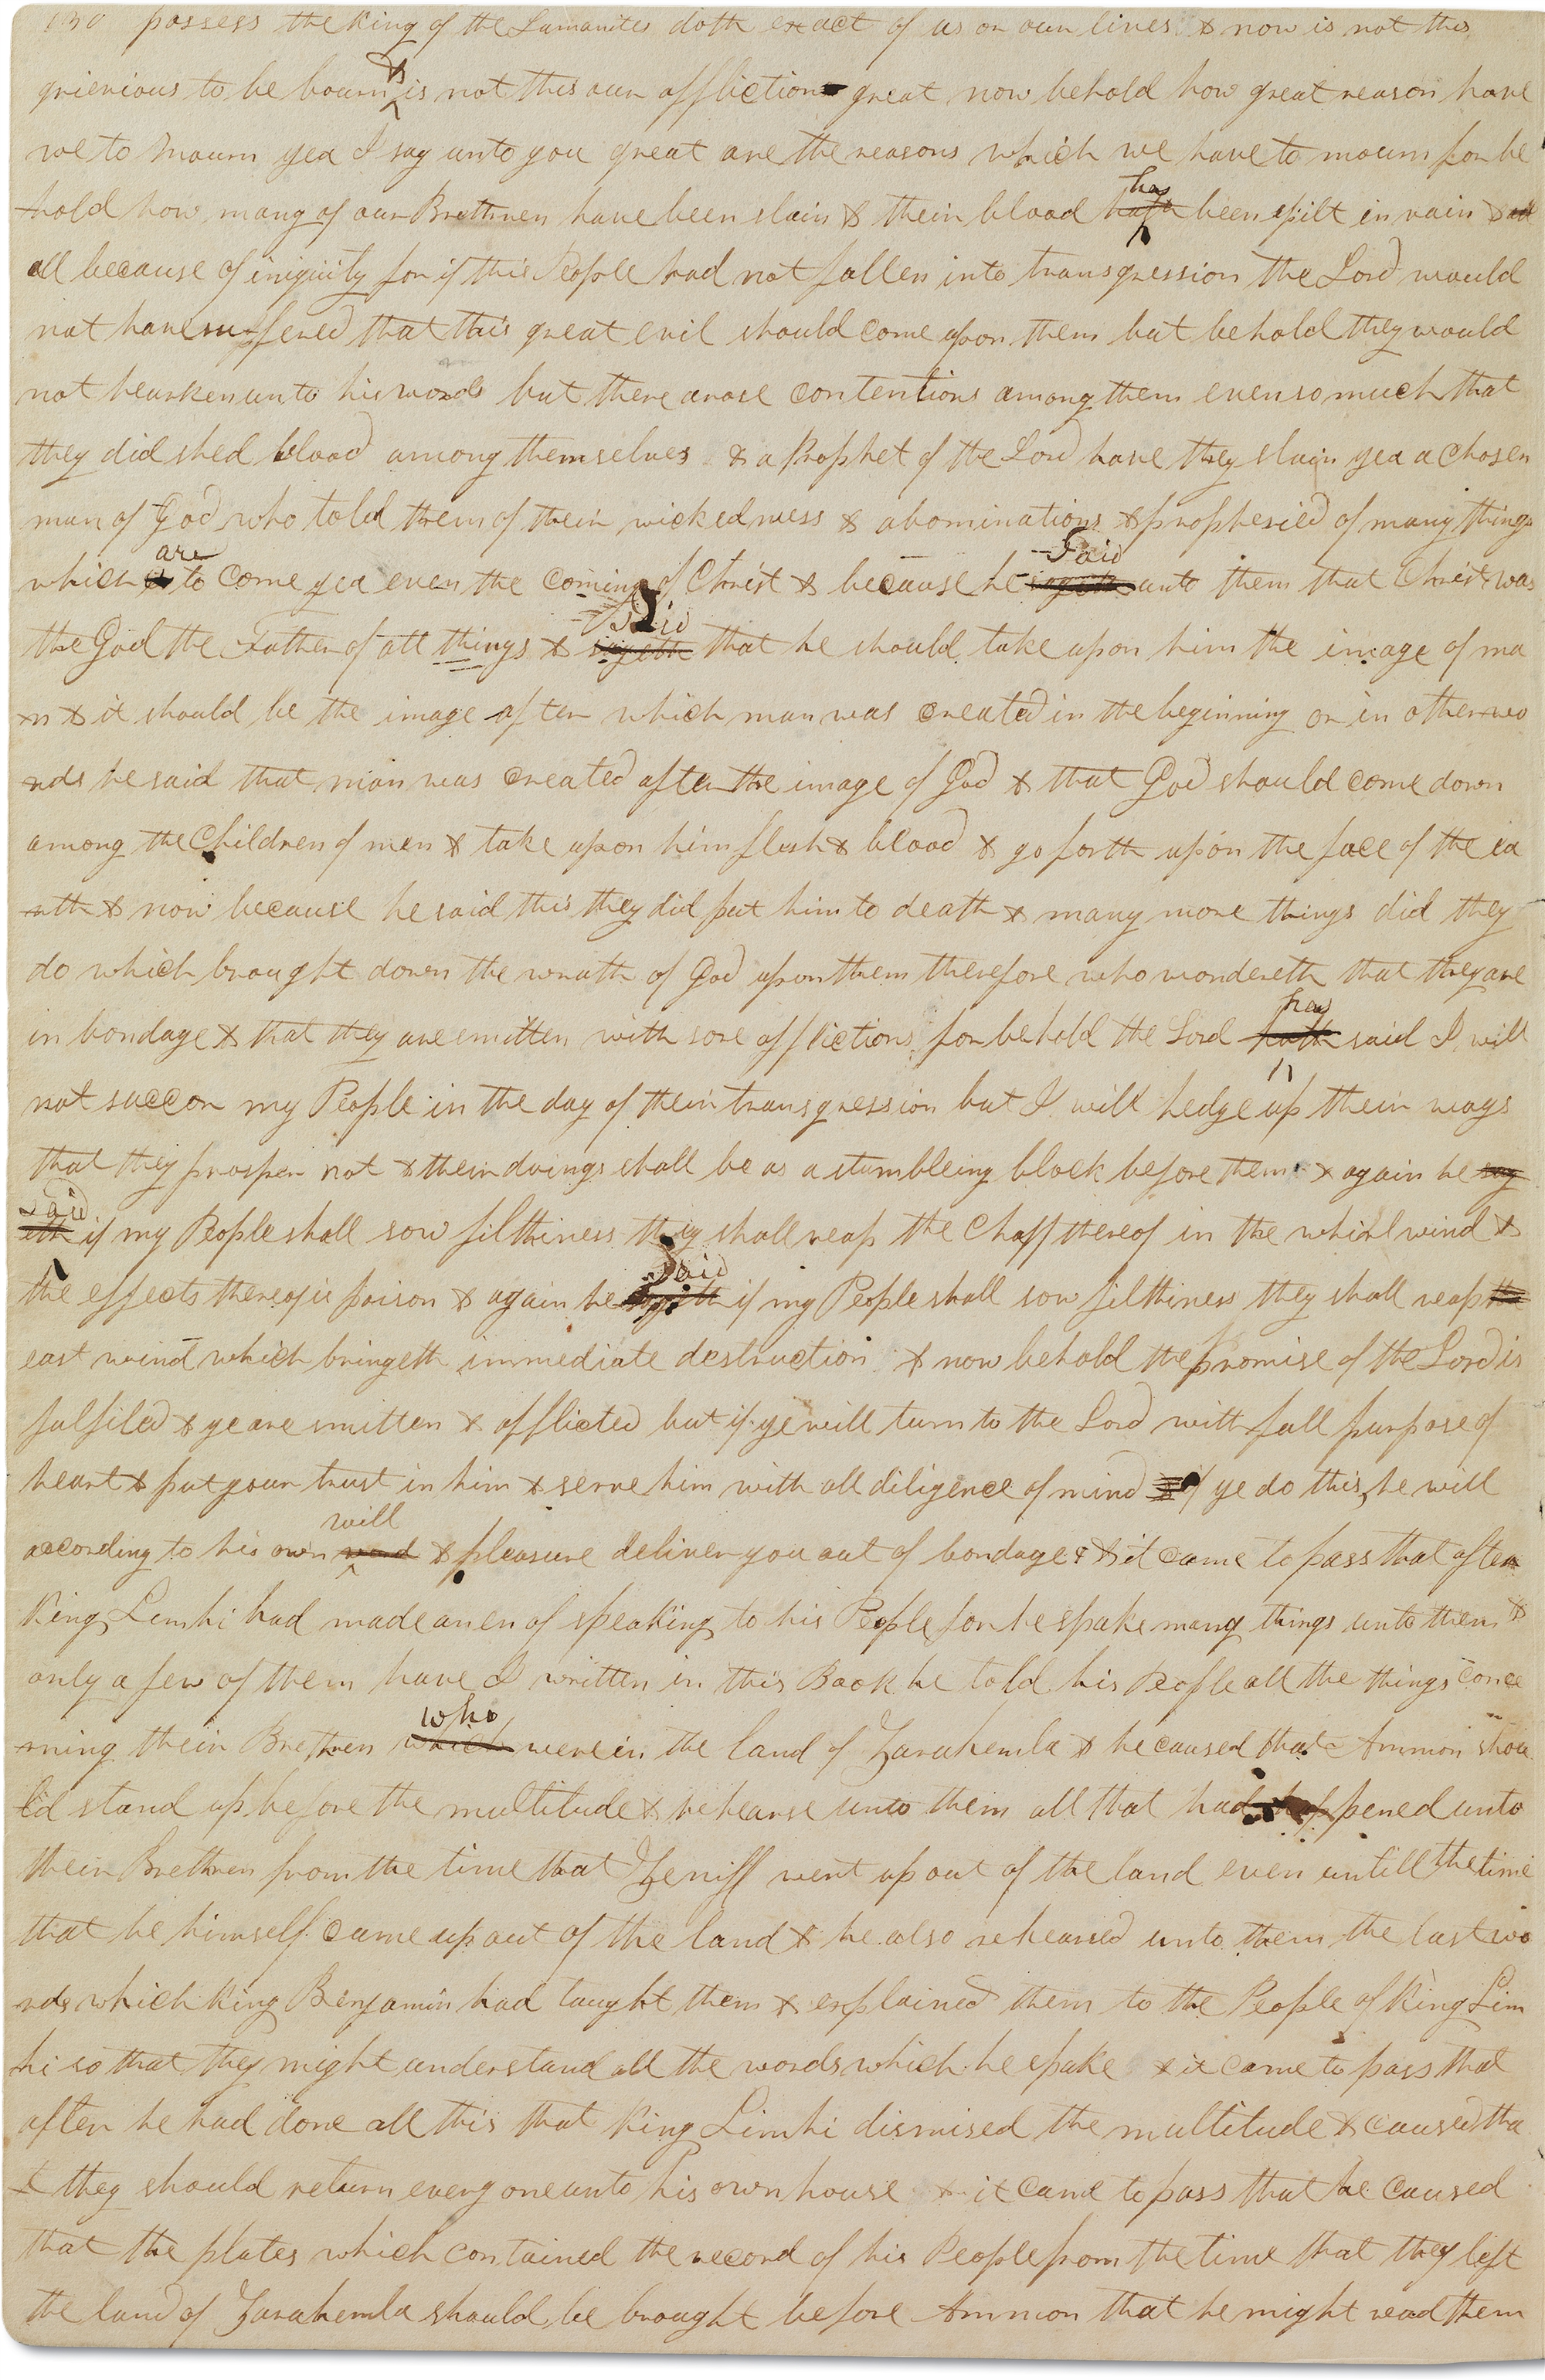 130 possess the King of the Lamanites doth exact of us or our lives & now is not this
grievious to be bourn & is not this our affliction great now behold how great reason have
we to mourn yea I say unto you great are the reasons which we have to mourn for be
hold how many of our Brethren have been slain & their blood hath has been spilt in vain & all
all because of iniquity for if this People had not fallen into transgression the Lord would
not have suffered that this great evil should come upon them but behold they would
not hearken unto his words but there arose contentions among them even so much that
they did shed blood among themselves & a Prophet of the Lord have they slain yea a chosen
man of God who told them of their wickedness & abominations & prophesied of many things
which is are to come yea even the coming of Christ & because he sayeth Said unto them that Christ was
the God the Father of all things & sayeth Said that he should take upon him the image of ma
n & it should be the image after which man was created in the beginning or in other wo
rds he said that man was created after the image of God & that God should come down
among the Children of men & take upon him flesh & blood & go forth upon the face of the ea
rth & now because he said this they did put him to death & many more things did they
do which brought down the wrath of God upon them therefore who wondereth that they are
in bondage & that they are smitten with sore afflictions for behold the Lord hath has said I will
not succor my People in the day of their transgression but I will hedge up their ways
that they prosper not & their doings shall be as a stumbleing block before them & again he say
eth Said if my People shall sow filthiness they shall reap the Chaff thereof in the whirlwind &
the effects thereof is poison & again he sayeth Said if my People shall sow filthiness they shall reap the
east wind which bringeth immediate destruction & now behold the promise of the Lord is
fulfiled & ye are smitten & afflicted but if ye will turn to the Lord with full purpose of
heart & put your trust in him & serve him with all diligence of mind & if ye do this he will
according to his own word will & pleasure deliver you out of bondage & & it came to pass that after
King Limhi had made an en of speaking to his People for he spake many things unto them &
only a few of them have I written in this Book he told his People all the things conce
rning their Brethren which who were in the land of Zarahemla & he caused that Ammon shou
ld stand up before the multitude & rehearse unto them all that had happened unto
their Brethren from the time that Zeniff went up out of the land even untill the time
that he himself came up out of the land & he also rehearsed unto them the last wo
rds which King Benjamin had taught them & explained them to the People of King Lim
hi so that they might understand all the words which he spake & it came to pass that
after he had done all this that King Limhi dismised the multitude & caused tha
t they should return every one unto his own house & it came to pass that he caused
that the plates which contained the record of his People from the time that they left
the land of Zarahemla should be brought before Ammon that he might read them